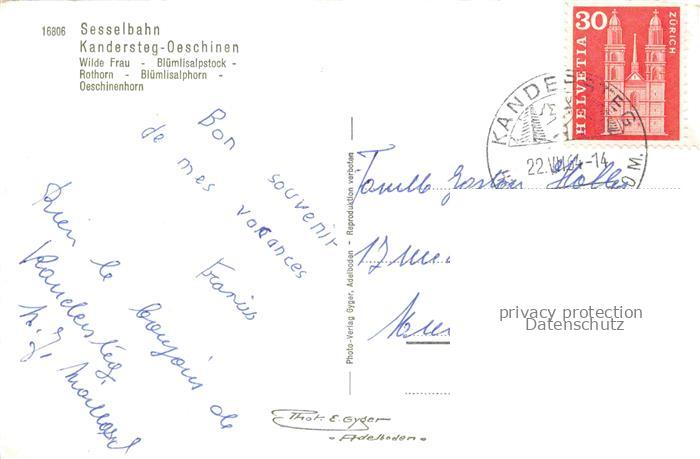 16806 Sesselbahn
Kandersteg-Oeschinen
Wilde Frau - Blümlisalpstock -
Rothorn - Blümlisalphorn -
Oeschinenhorn
Bon souvenir
de mes vacances
Francis
Bien le bonjour de
Kandersteg
Photo-Verlag Gyger, Adelboden - Reproduktion verboten
Phot. E. Gyger
Adelboden
30
HELVETIA
ZÜRICH
KANDERSTEG
22. VII 64-14
Famille Gaston
17
privacy protection
Datenschutz